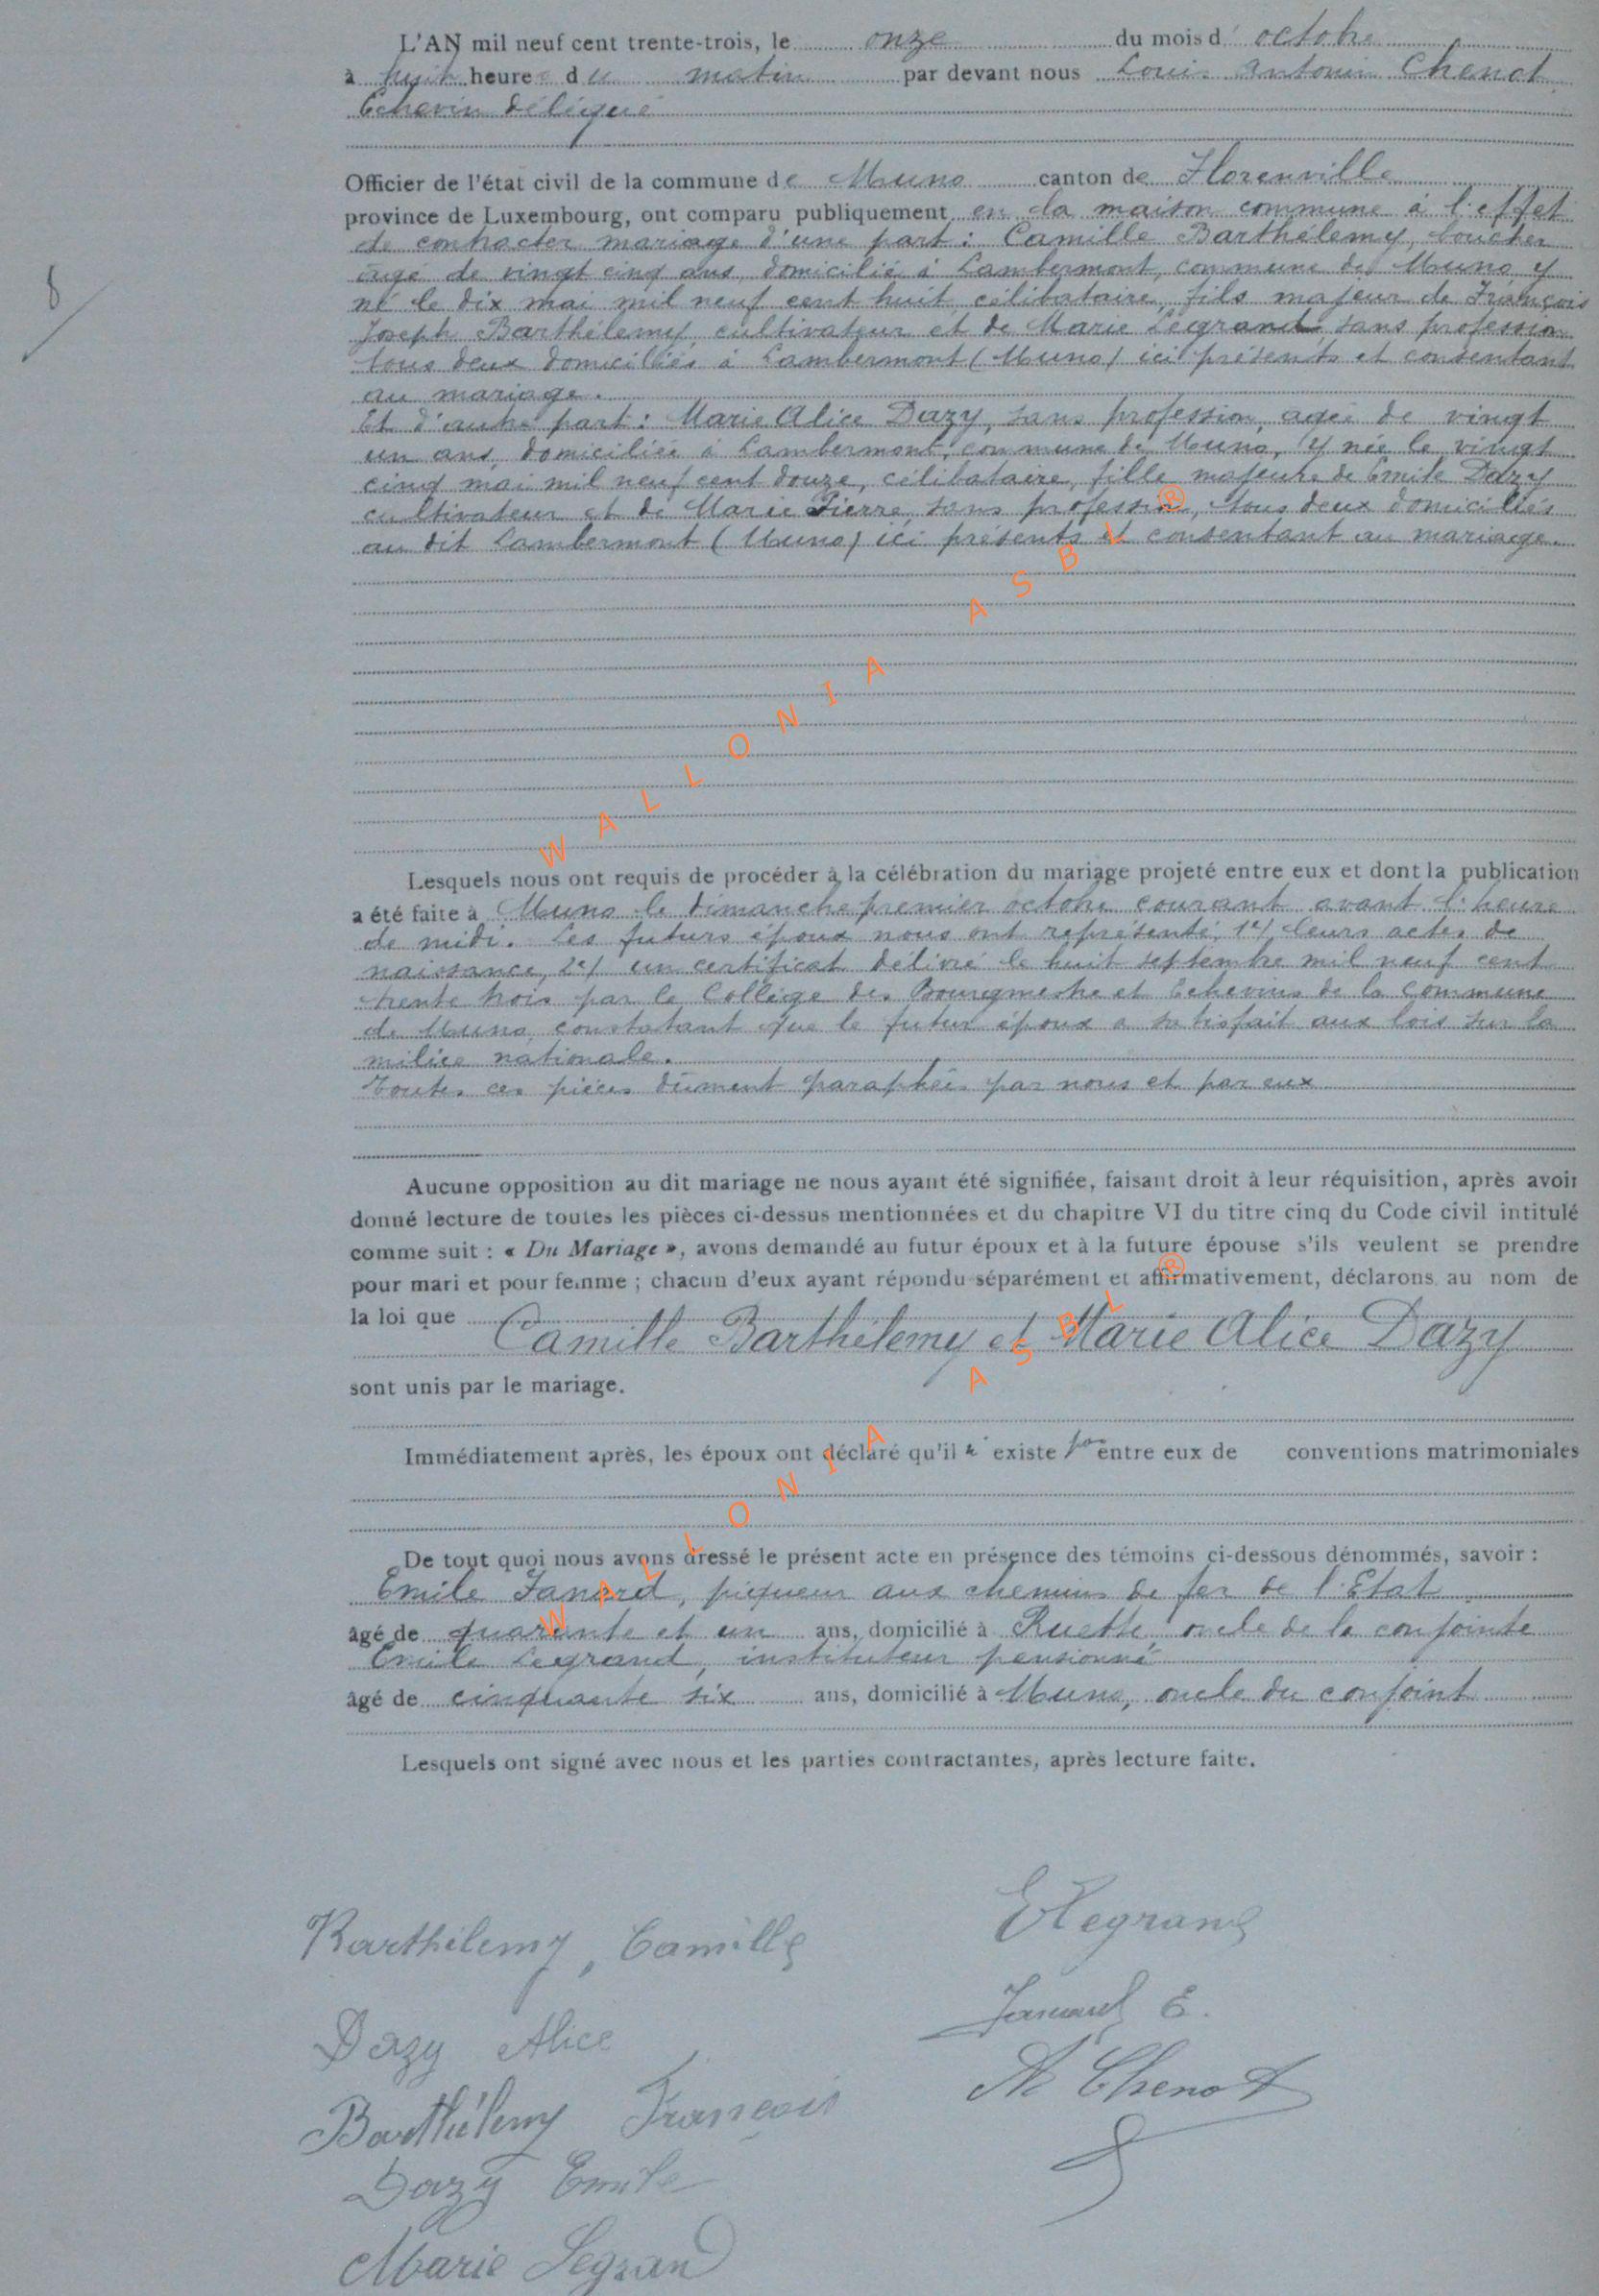 L'AN mil neuf cent trente-trois, le onze du mois d' octobre
à huit heures du matin par devant nous Louis Antonin Chenot
Echevin délégué
Officier de l'état civil de la commune de Muno canton de Florenville
province de Luxembourg, ont comparu publiquement en la maison commune à l'effet
de contracter mariage d'une part : Camille Barthélemy, boucher
âgé de vingt cinq ans, domicilié à Lambermont, commune de Muno y
né le dix mai mil neuf cent huit, célibataire, fils majeur de François
Joseph Barthélemy, cultivateur et de Marie Legrand, sans profession
tous deux domiciliés à Lambermont (Muno) ici présents et consentant
au mariage.
Et d'autre part : Marie Alice Dazy, sans profession, agée de vingt
un ans, domiciliée à Lambermont, commune de Muno, y née le vingt
cinq mai mil neuf cent douze, célibataire, fille majeure de Emile Dazy
cultivateur et de Marie Pierre, sans profession, tous deux domiciliés
au dit Lambermont (Muno) ici présents et consentant au mariage.
WALLONIA ASBL ®
Lesquels nous ont requis de procéder à la célébration du mariage projeté entre eux et dont la publication
a été faite à Muno le dimanche premier octobre courant avant l'heure
de midi. Les futurs époux nous ont représenté, 1°/ leurs actes de
naissance, 2°/ un certificat délivré le huit septembre mil neuf cent
trente trois par le Collège des Bourgmestre et Echevins de la commune
de Muno, constatant que le futur époux a satisfait aux lois sur la
milice nationale.
Toutes ces pièces dûment paraphées par nous et par eux
Aucune opposition au dit mariage ne nous ayant été signifiée, faisant droit à leur réquisition, après avoir
donné lecture de toutes les pièces ci-dessus mentionnées et du chapitre VI du titre cinq du Code civil intitulé
comme suit : « Du Mariage », avons demandé au futur époux et à la future épouse s'ils veulent se prendre
pour mari et pour femme ; chacun d'eux ayant répondu séparément et affirmativement, déclarons au nom de
la loi que
Camille Barthélemy et Marie Alice Dazy
sont unis par le mariage.
Immédiatement après, les époux ont déclaré qu'il n' existe pas entre eux de conventions matrimoniales
WALLONIA ASBL ®
De tout quoi nous avons dressé le présent acte en présence des témoins ci-dessous dénommés, savoir :
Emile Janard, piqueur aux chemins de fer de l'Etat
âgé de quarante et un ans, domicilié à Ruette, oncle de la conjointe
Emile Legrand, instituteur pensionné
âgé de cinquante six ans, domicilié à Muno, oncle du conjoint
Lesquels ont signé avec nous et les parties contractantes, après lecture faite.
8
Barthélemy, Camille
E Legrand
Janard E.
Dazy Alice
A Chenot
Barthélemy François
Dazy Emile
Marie Legrand